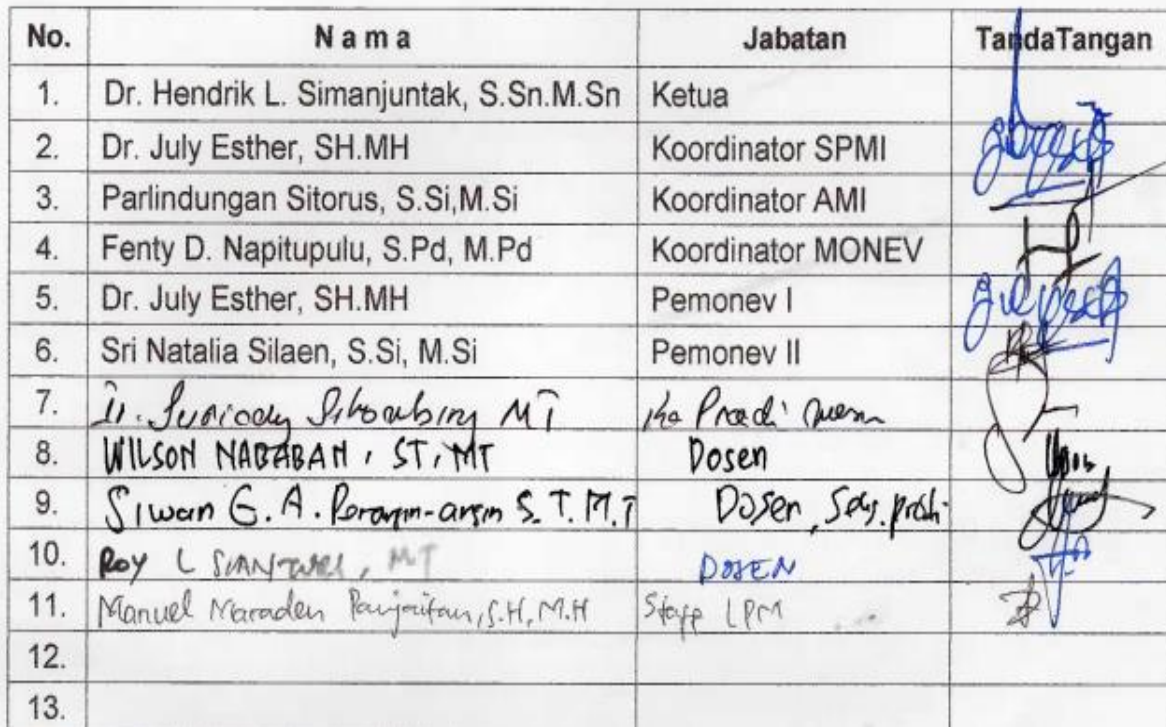 No. Nama Jabatan TandaTangan
1. Dr. Hendrik L. Simanjuntak, S.Sn.M.Sn Ketua
2. Dr. July Esther, SH.MH Koordinator SPMI
3. Parlindungan Sitorus, S.Si,M.Si Koordinator AMI
4. Fenty D. Napitupulu, S.Pd, M.Pd Koordinator MONEV
5. Dr. July Esther, SH.MH Pemonev I
6. Sri Natalia Silaen, S.Si, M.Si Pemonev II
7. Ir. Suriady Sihombing MT Ka Prodi
8. WILSON NABABAN, ST, MT Dosen
9. Siwan G. A. Perangin-angin S.T.M.T Dosen, Sek. prodi
10. ROY L SIANTURI, MT DOSEN
11. Manuel Maraden Panjaitan, S.H, M.H Staff LPM
12.
13.